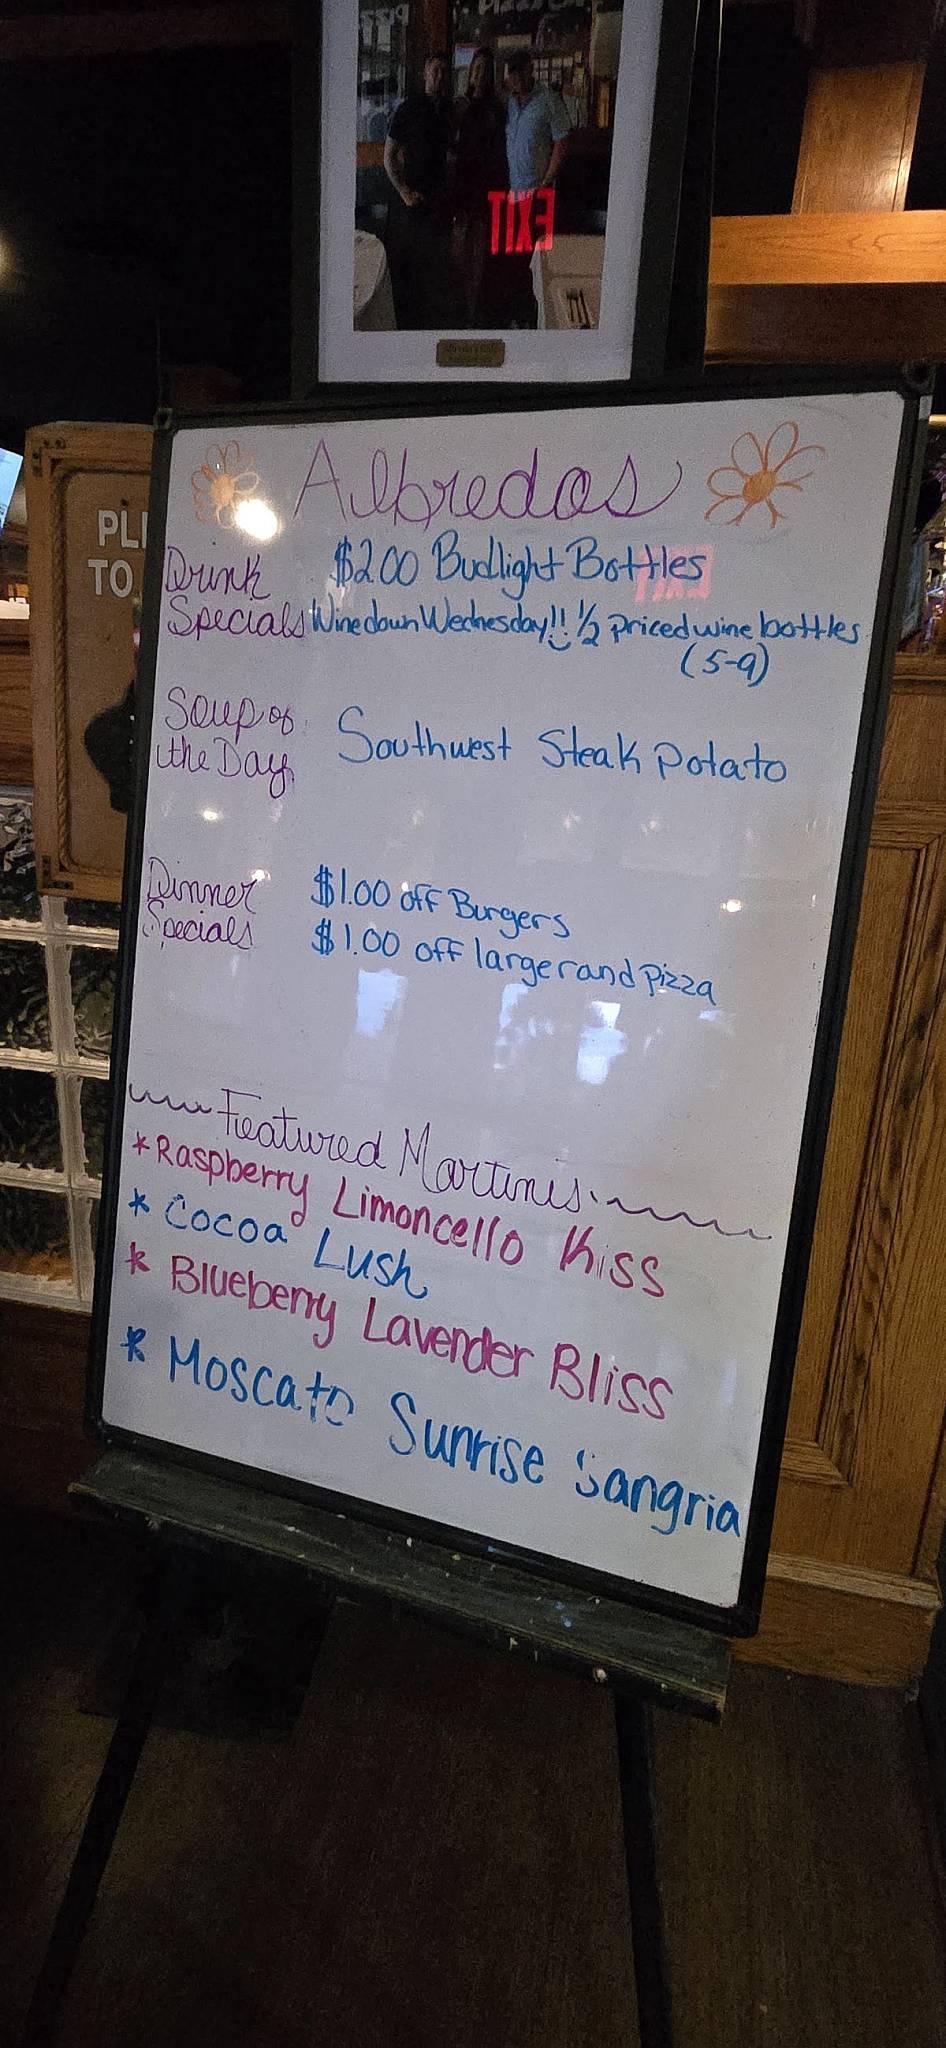 EXIT
PL
TO
Albredos
Drink Specials
$2.00 Budlight Bottles
Winedown Wednesday!! 1/2 priced wine bottles
(5-9)
Soup of the Day
Southwest Steak Potato
Dinner Specials
$1.00 off Burgers
$1.00 off large rand pizza
Featured Martinis
* Raspberry Limoncello Kiss
* Cocoa Lush
* Blueberry Lavender Bliss
* Moscato Sunrise Sangria